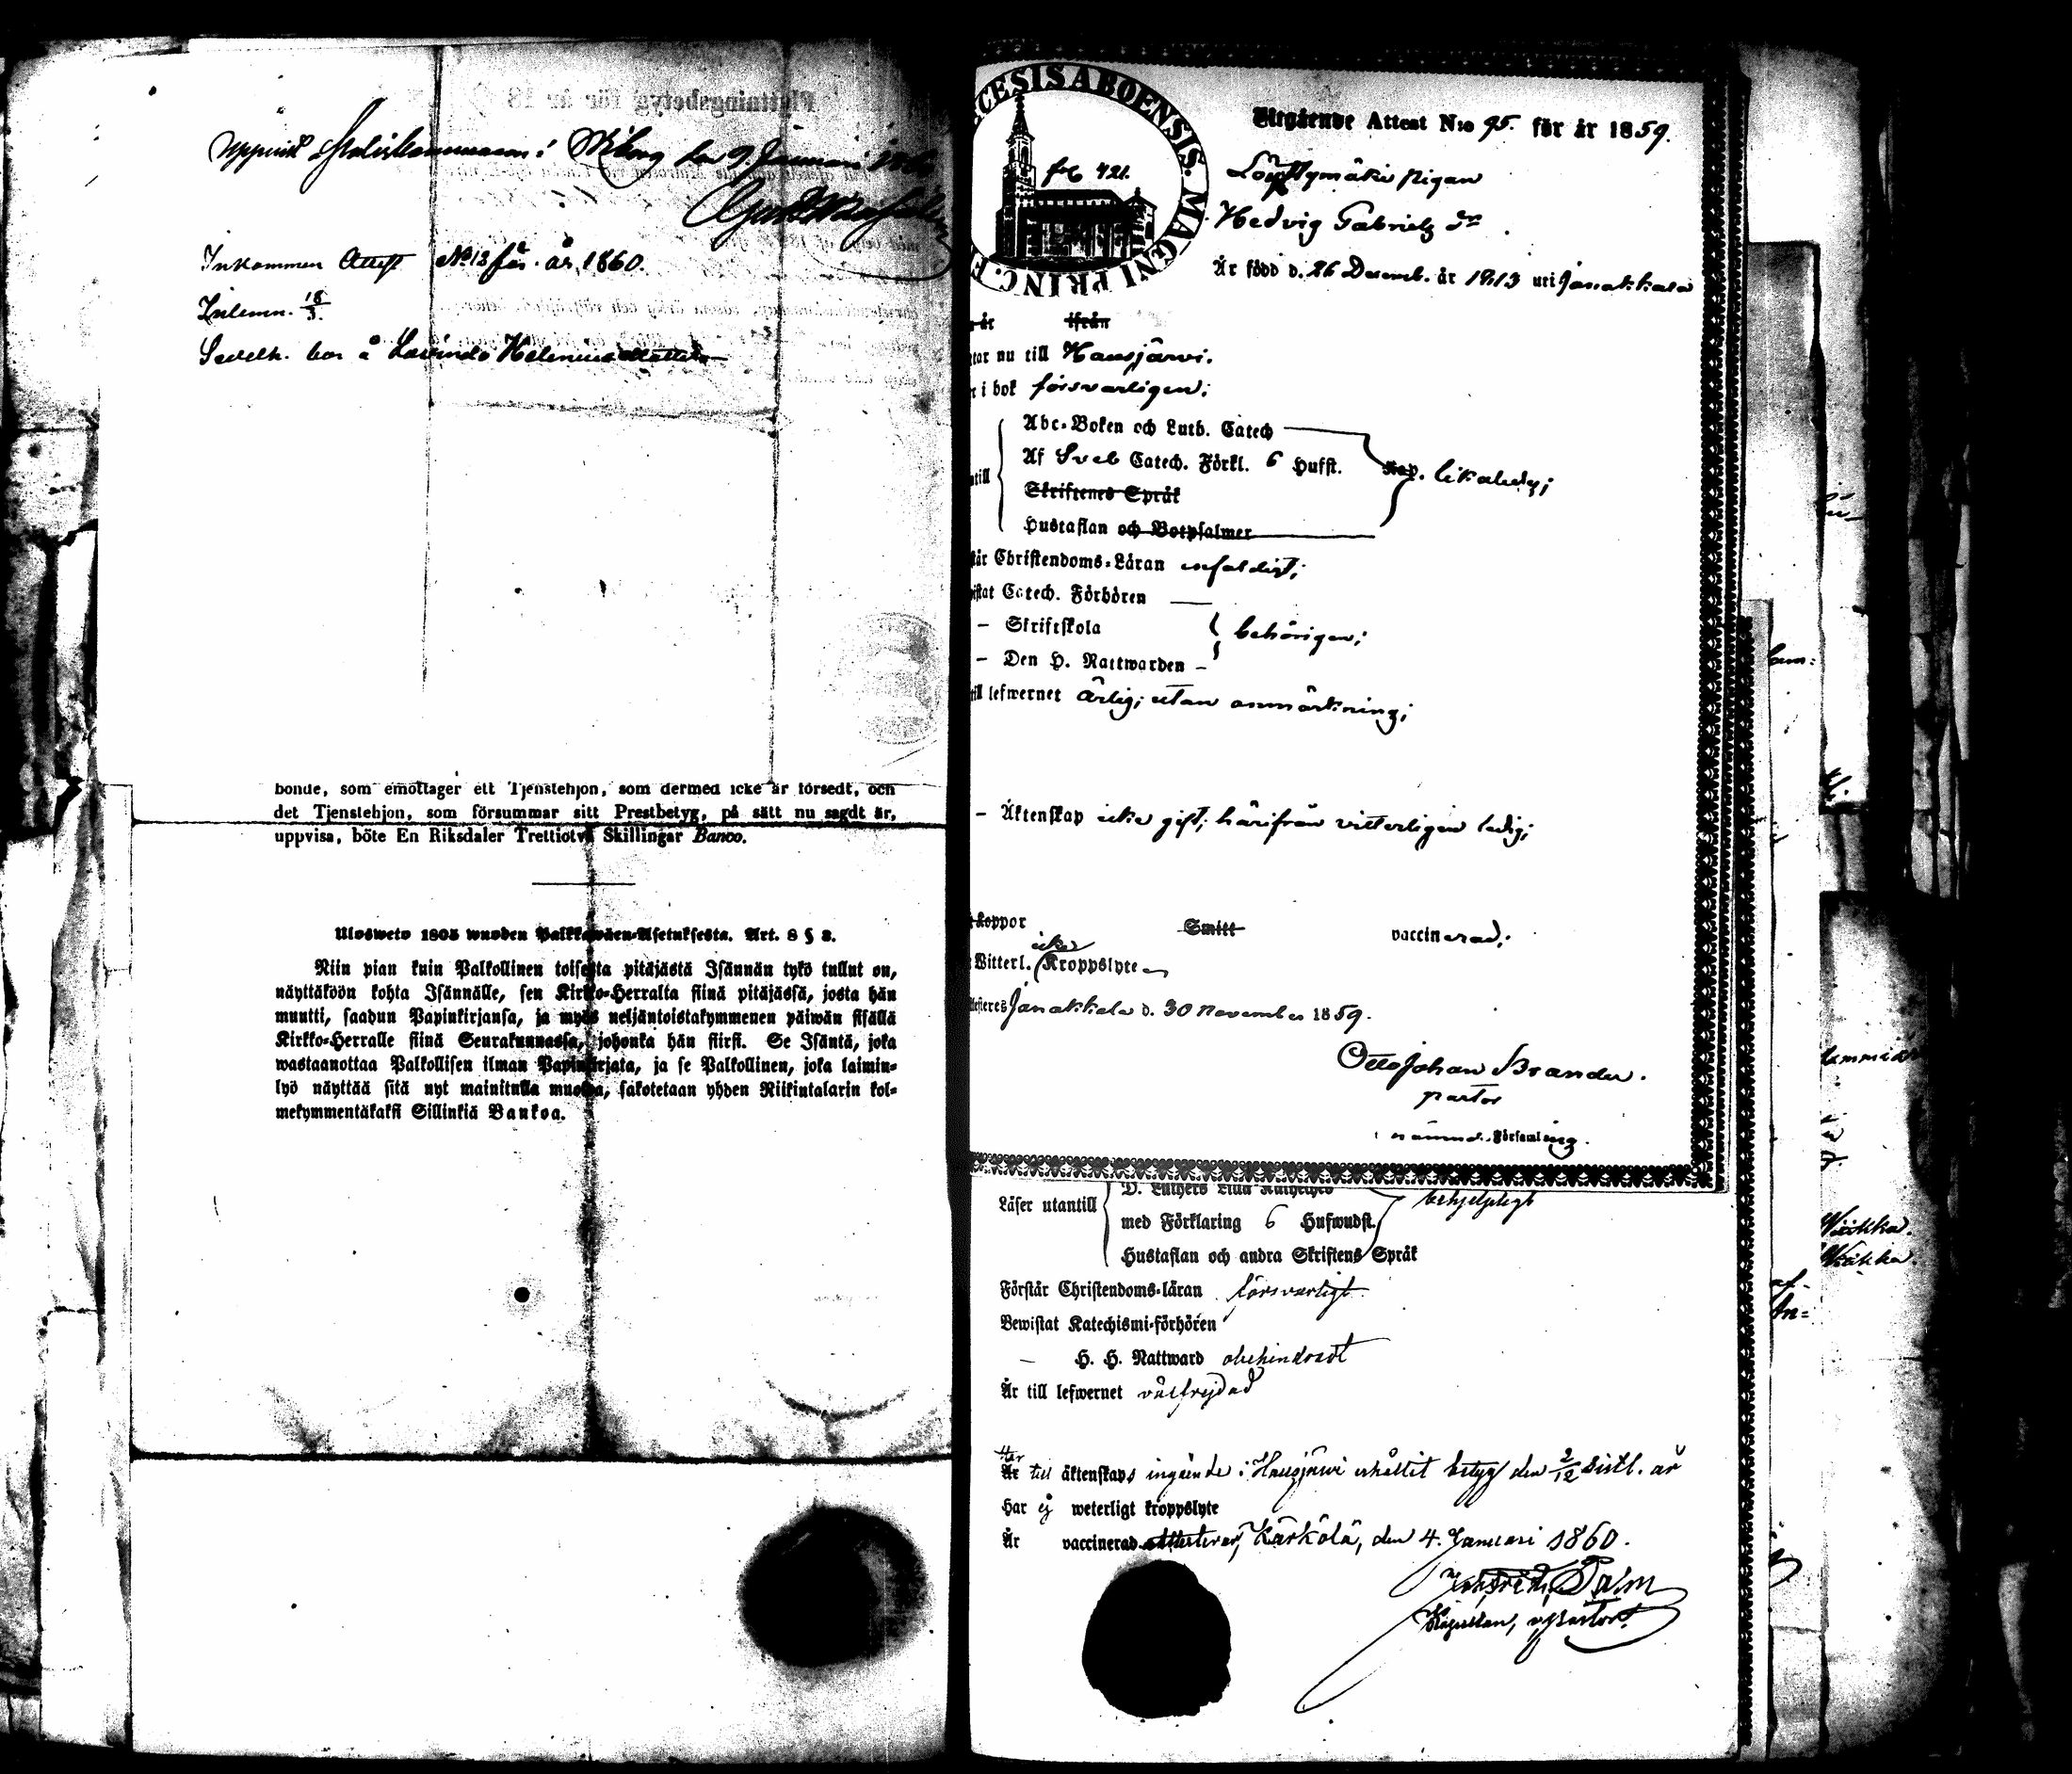 Uppvist Poliskammaren i Wiborg den 9. Januari 1860
Inkommen Attest No 13 för år 1860.
Inlemn. 18/3.
bor å Helenius
bonde, som emottager ett Tjenstehjon, som dermed icke är försedt, och
det Tjenstehjon, som försummar sitt Prestbetyg, på sätt nu sagdt är,
uppvisa, böte En Riksdaler Trettiotvå Skillingar Banco.
Ulosweto 1805 wuoden Palkkawäen-Asetuksesta. Art. 8 § 3.
Niin pian kuin Palkollinen toisesta pitäjästä Isännän tykö tullut on,
näyttäköön kohta Isännälle, sen Kirkko-Herralta siinä pitäjässä, josta hän
muutti, saadun Papinkirjansa, ja myös neljäntoistakymmenen päiwän sisällä
Kirkko-Herralle siinä Seurakunnassa, johonka hän siirsi. Se Isäntä, joka
wastaanottaa Palkollisen ilman Papinkirjata, ja se Palkollinen, joka laimin-
lyö näyttää sitä nyt mainitulla muotoa, sakotetaan yhden Riikintalarin kol-
mekymmentäkaksi Sillinkiä Bankoa.
CESIS ABOENSIS. MAGNI PRINC. F
421.
Utgående Attest N:o 95. för år 1859.
pigan
Hedvig Gabriels dr
Är född d. 26 Decemb. år 1813 uti Janakkala
år ifrån
tar nu till Hausjärvi.
r i bok försvarligen;
Abc-Boken och Luth. Catech
Af Sveb Catech. Förkl. 6 Hufst. Kap. likaledes;
ntill
Skriftenes Språk
Hustaflan och Botpsalmer
står Christendoms-Läran enfaldigt;
istat Catech. Förhören
- Skriftskola behörigen;
- Den H. Nattwarden -
till lefwernet ärlig; utan anmärkning;
- Äktenskap icke gift; härifrån vitterligen ledig;
t koppor Smitt vaccinerad;
icke
Witterl. Kroppslyte
testeres Janakkala d. 30 November 1859.
Otto Johan Brander.
pastor
i nämnd. Församling.
D. Luthers Lilla Katheches behjelpligt
Läser utantill
med Förklaring 6 Hufwudst.
Hustaflan och andra Skriftens Språk
Förstår Christendoms-läran försvarligt
Bewistat Katechismi-förhören
- H. H. Nattward obehindradt
Är till lefwernet välfrejdad
Har
Är till äktenskaps ingående i Hausjärvi erhållit betyg den 2/12 sistl. år
Har ej weterligt kroppslyte
Är vaccinerad attesterar, Kärkölä, den 4. Januari 1860.
Palm
Kapellan, v. pastor.